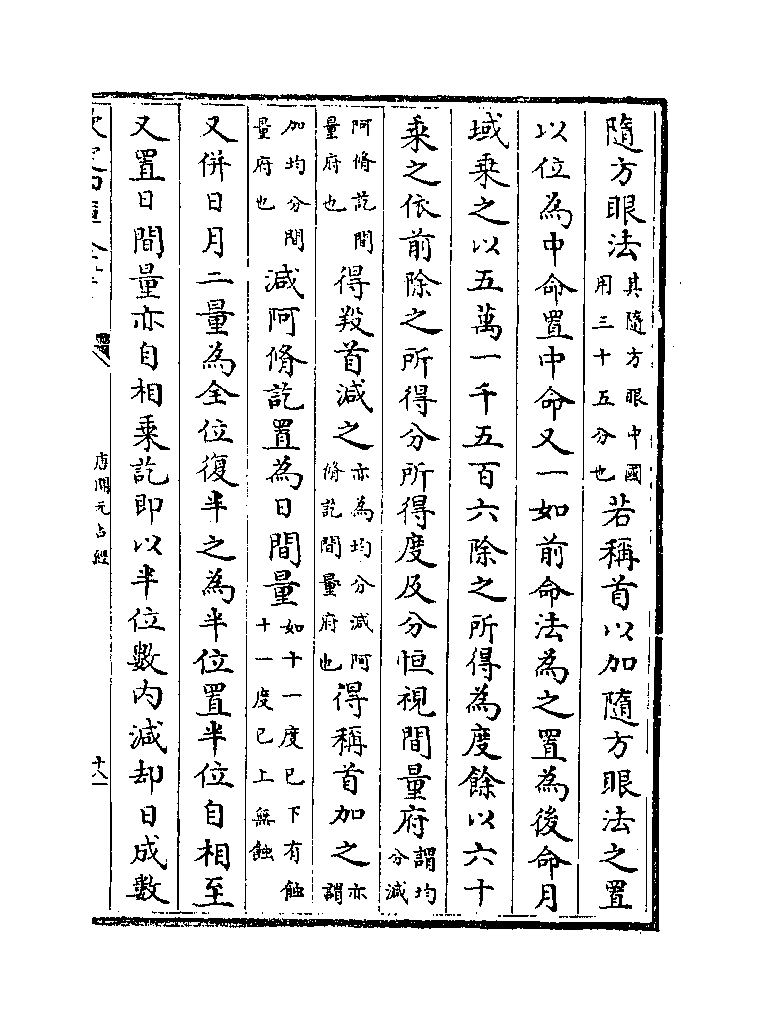 隨方眼法其隨方眼中國用三十五分也若稱首以加隨方眼法之置
以位為中命置中命又一如前命法為之置為後命月
域乘之以五萬一千五百六除之所得為度餘以六十
乘之依前除之所得分所得度及分恒視間量府謂均分減
阿脩訖間量府也得羖首減之亦為均分減阿脩訖間量府也得稱首加之亦謂
加均分間量府也減阿脩訖置為日間量如十一度已下有蝕十一度已上無蝕
又併日月二量為全位復半之為半位置半位自相至
又置日間量亦自相乘訖即以半位數內減却日成數
唐開元占經
十八